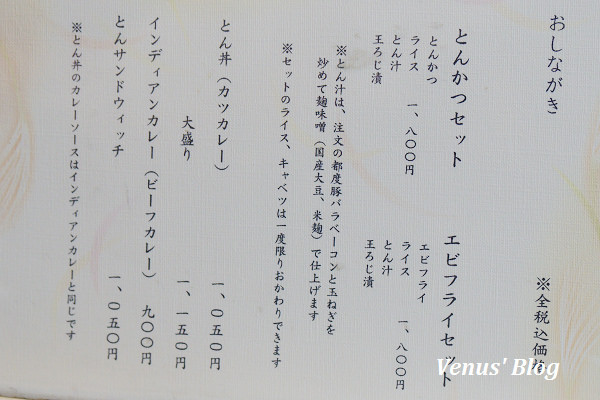 おしながき
※全税込価格
とんかつセット
とんかつ
ライス
とん汁
王ろじ漬
一、八〇〇円
エビフライセット
エビフライ
ライス
とん汁
王ろじ漬
一、八〇〇円
※とん汁は、注文の都度豚バラベーコンと玉ねぎを
炒めて麹味噌（国産大豆、米麹）で仕上げます
※セットのライス、キャベツは一度限りおかわりできます
とん丼（カツカレー） 一、〇五〇円
大盛り 一、一五〇円
インディアンカレー（ビーフカレー） 九〇〇円
とんサンドウィッチ 一、〇五〇円
※とん丼のカレーソースはインディアンカレーと同じです
Venus' Blog